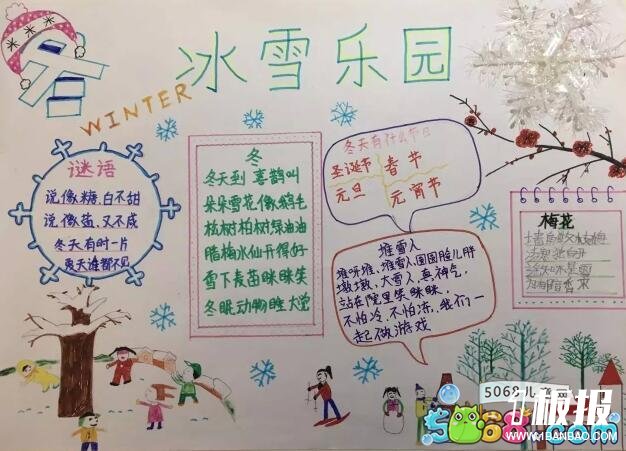 冬
冰雪乐园
WINTER
谜语
说像糖,白不甜
说像盐,又不咸
冬天有时一片
夏天谁都不见
冬
冬天到 喜鹊叫
朵朵雪花像鹅毛
松树柏树绿油油
腊梅水仙开得好
雪下麦苗眯眯笑
冬眠动物睡大觉
冬天有什么节日
圣诞节 春节
元旦 元宵节
堆雪人
堆呀堆,堆雪人,圆圆脸儿胖
墩墩,大雪人,真神气,
站在院里笑眯眯,
不怕冷,不怕冻,我们一
起做游戏
梅花
5068儿
板报
5068
WWW.1BANBAO.COM